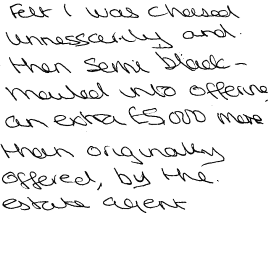 Felt I was chased
unnesscarily and.
then semi black-
mailed into offering
an extra £5,000 more
than originally
offered, by the.
estate agent